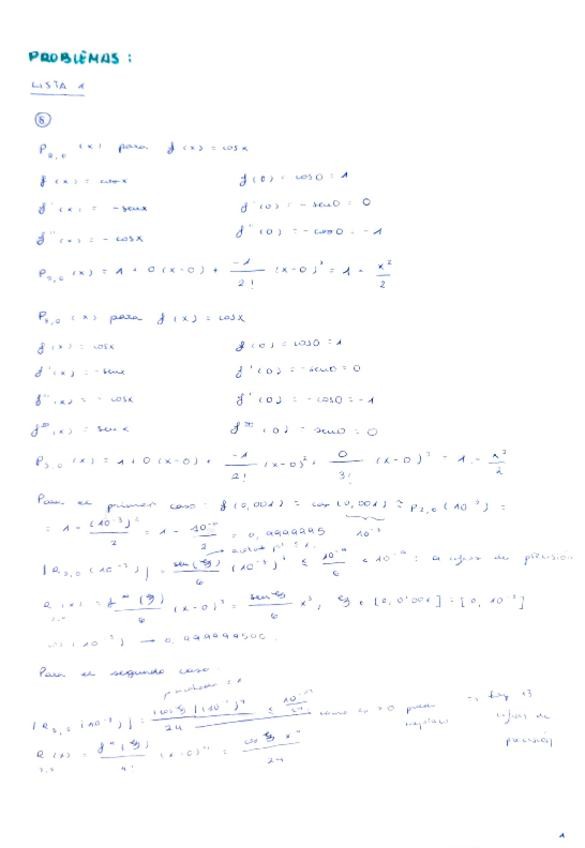 PROBLEMAS :
LISTA 1
8
P₂,₀ (x) para f(x) = cosx
f(x) = cosx f(0) = cos0 = 1
f'(x) = -senx f'(0) = -sen0 = 0
f''(x) = -cosx f''(0) = -cos0 = -1
P₂,₀ (x) = 1 + 0(x-0) + -1/2! (x-0)² = 1 - x²/2
P₃,₀ (x) para f(x) = cosx
f(x) = cosx f(0) = cos0 = 1
f'(x) = -senx f'(0) = -sen0 = 0
f''(x) = -cosx f''(0) = -cos0 = -1
f'''(x) = senx f'''(0) = sen0 = 0
P₃,₀ (x) = 1 + 0(x-0) + -1/2! (x-0)² + 0/3! (x-0)³ = 1 - x²/2
Para el primer caso: f(0,001) = cos(0,001) ≈ P₂,₀(10⁻³) =
= 1 - (10⁻³)²/2 = 1 - 10⁻⁶/2 = 0,9999995 10⁻³
|R₂,₀(10⁻³)| = sen(ξ)/6 (10⁻³)³ ≤ 10⁻⁹/6 < 10⁻⁹ : cifras de precisión
R₂,₀(x) = f'''(ξ)/6 (x-0)³ = senξ/6 x³, ξ ∈ [0, 0'001] = [0, 10⁻³]
(10⁻³) → 0,999999500
Para el segundo caso:
|R₃,₀(10⁻³)| = |cosξ|(10⁻³)⁴/24 ≤ 10⁻¹²/24 como para hay 13
cifras de
R₃,₀(x) = f⁗(ξ)/4! (x-0)⁴ = cosξ x⁴/24 precisión
1